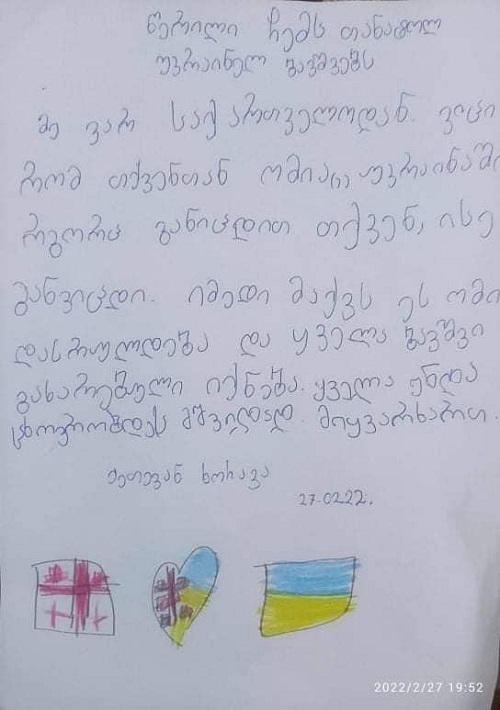 წერილი ჩემს თანატოლ
უკრაინელ ბავშვებს
მე ვარ საქართველოდან. ვიცი
რომ თქვენთან ომია, უკრაინაში
როგორც განიცდით თქვენ, ისე
განვიცდი. იმედი მაქვს ეს ომი
დასრულდება და ყველა ბავშვი
გახარებული იქნება. ყველა უნდა
ცხოვრობდეს მშვიდად. მიყვარხართ.
ქეთევან ხორავა
27.02.22.
2022/2/27 19:52